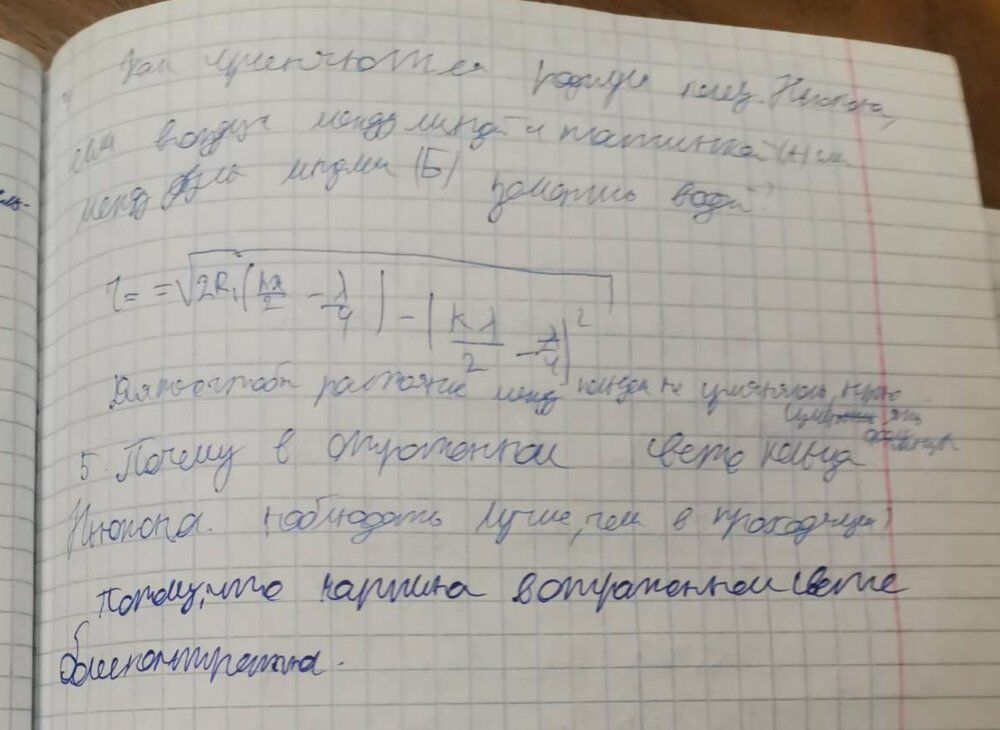 Как изменяются радиусы колец Ньютона,
если воздух между линзой и пластинкой (А) или
между двумя линзами (Б) заменить водой?
r = = √2R₁(kλ/2 - λ/4) - (kλ/2 - λ/4)²
растояние между кольцами не изменялось, нужно
5. Почему в отраженном свете кольца
Ньютона наблюдать лучше, чем в проходящем?
потому, что картина в отраженном свете
более контрастна.